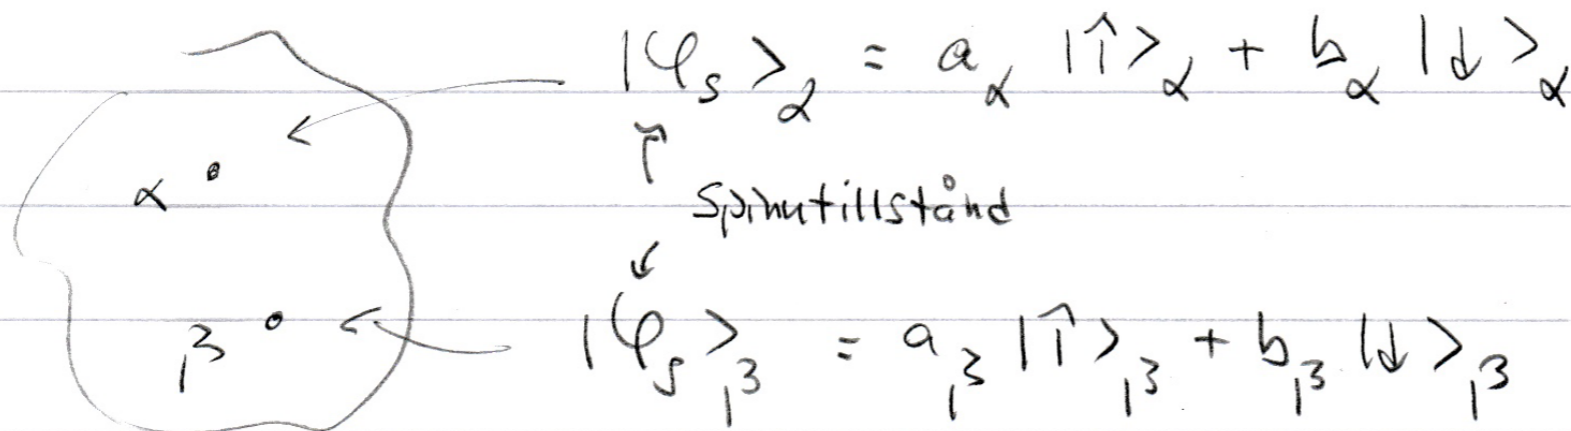 |φₛ⟩_α = a_α |↑⟩_α + b_α |↓⟩_α
α
↑
Spinntillstånd
↓
β
|φₛ⟩_β = a_β |↑⟩_β + b_β |↓⟩_β